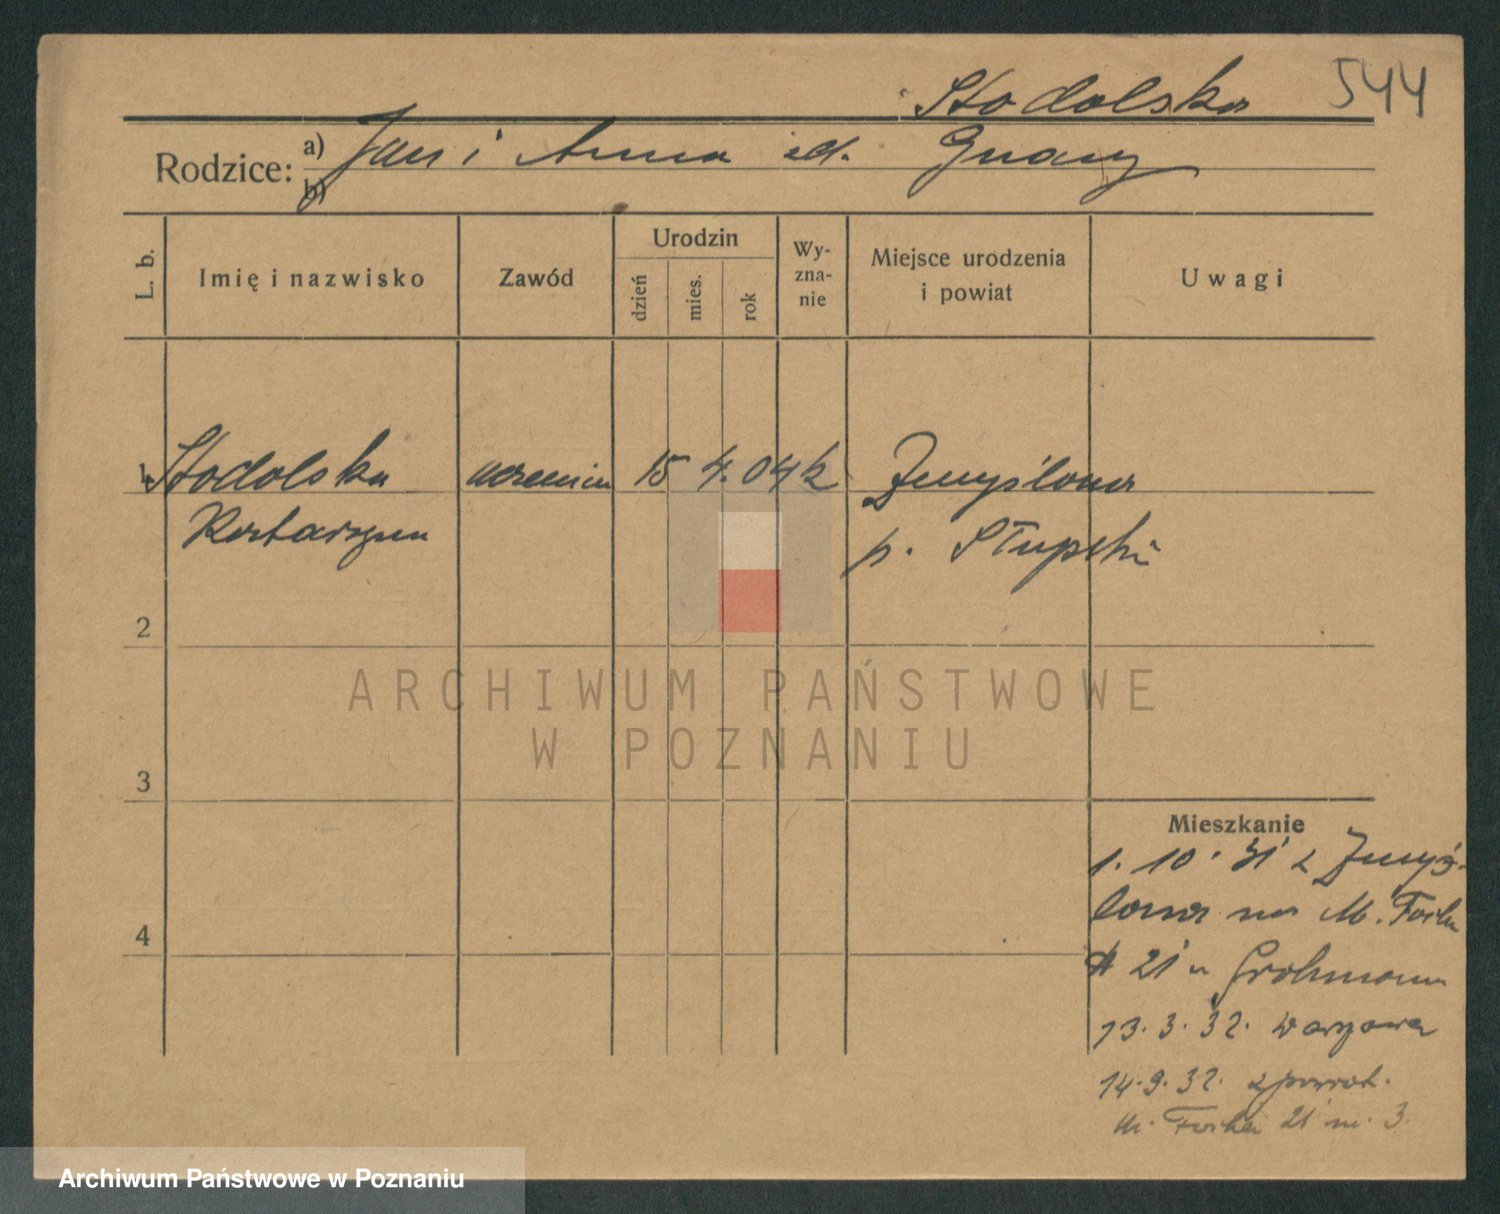 Stodolska 544
Rodzice: a) Jan i Anna zd. Gnacy
b)
L. b. Imię i nazwisko Zawód Urodzin dzień mies. rok Wy-zna-nie Miejsce urodzenia i powiat Uwagi
1 Stodolska uczenica 15 4. 04 k Zmyślona
Katarzyna p. Słupski
2
ARCHIWUM PAŃSTWOWE
W POZNANIU
3
Mieszkanie
1. 10. 31 z Zmyś-
4
lona na M. Focha
21 u Grohmann
13. 3. 32. Warszawa
14. 9. 32. z powrot.
M. Focha 21 m. 3.
Archiwum Państwowe w Poznaniu